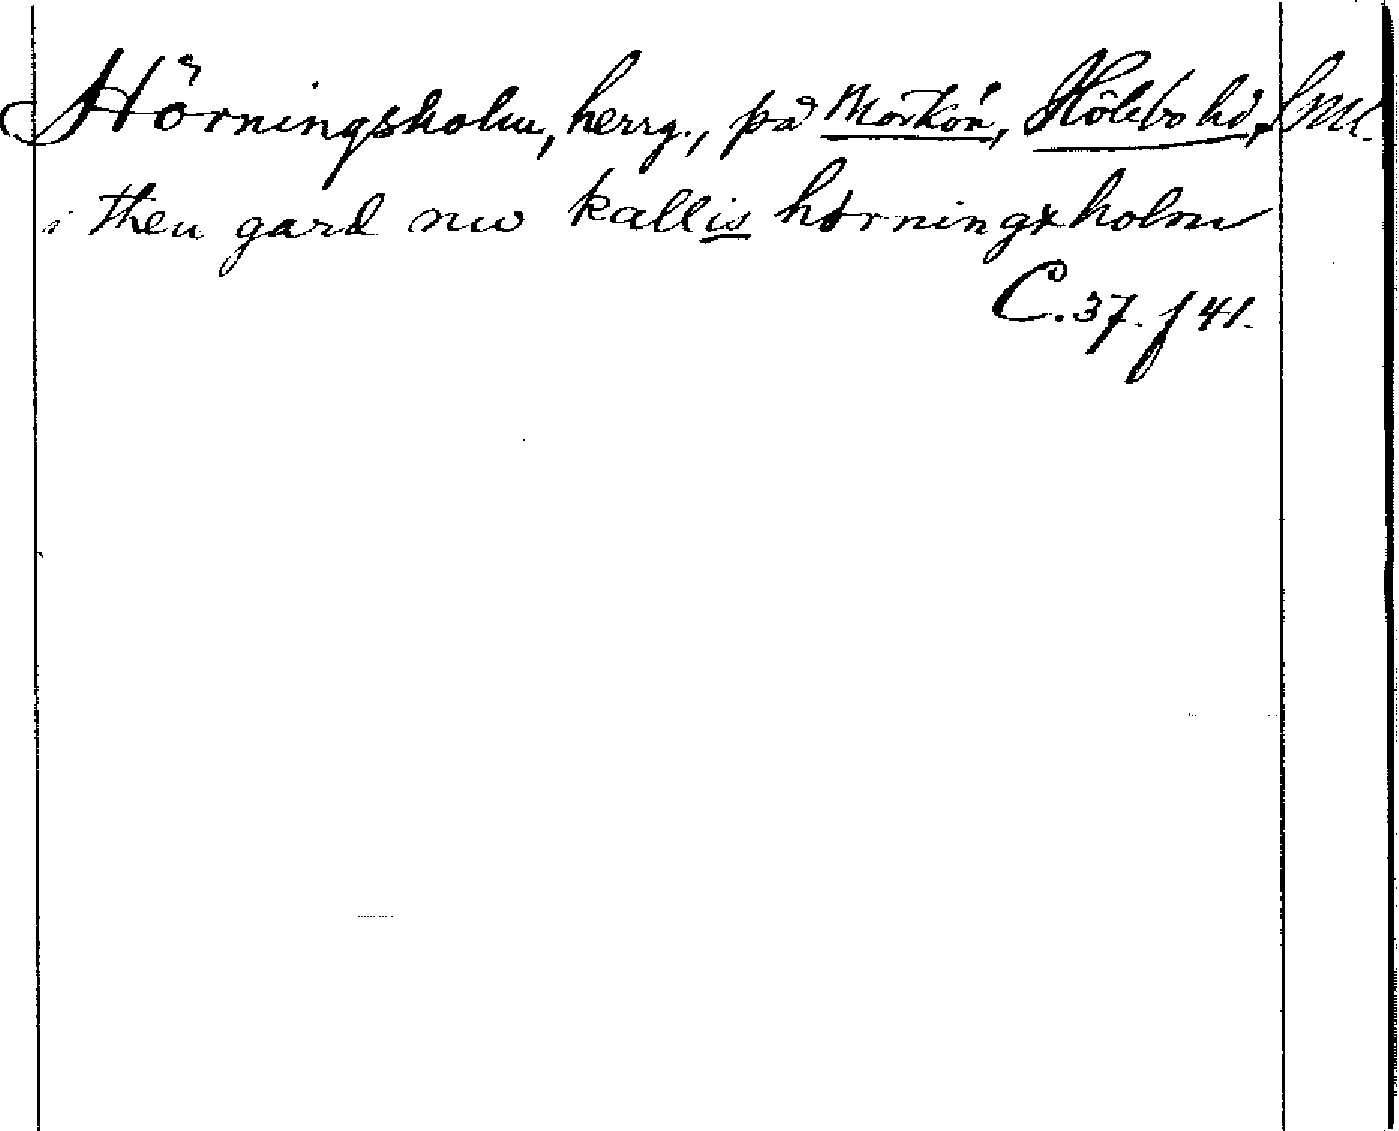 Hörningsholm, herrg., på Mörkön, Hölebo hd, Sml.
i then gard nw kallis hørningxholm
C. 37. f 41.